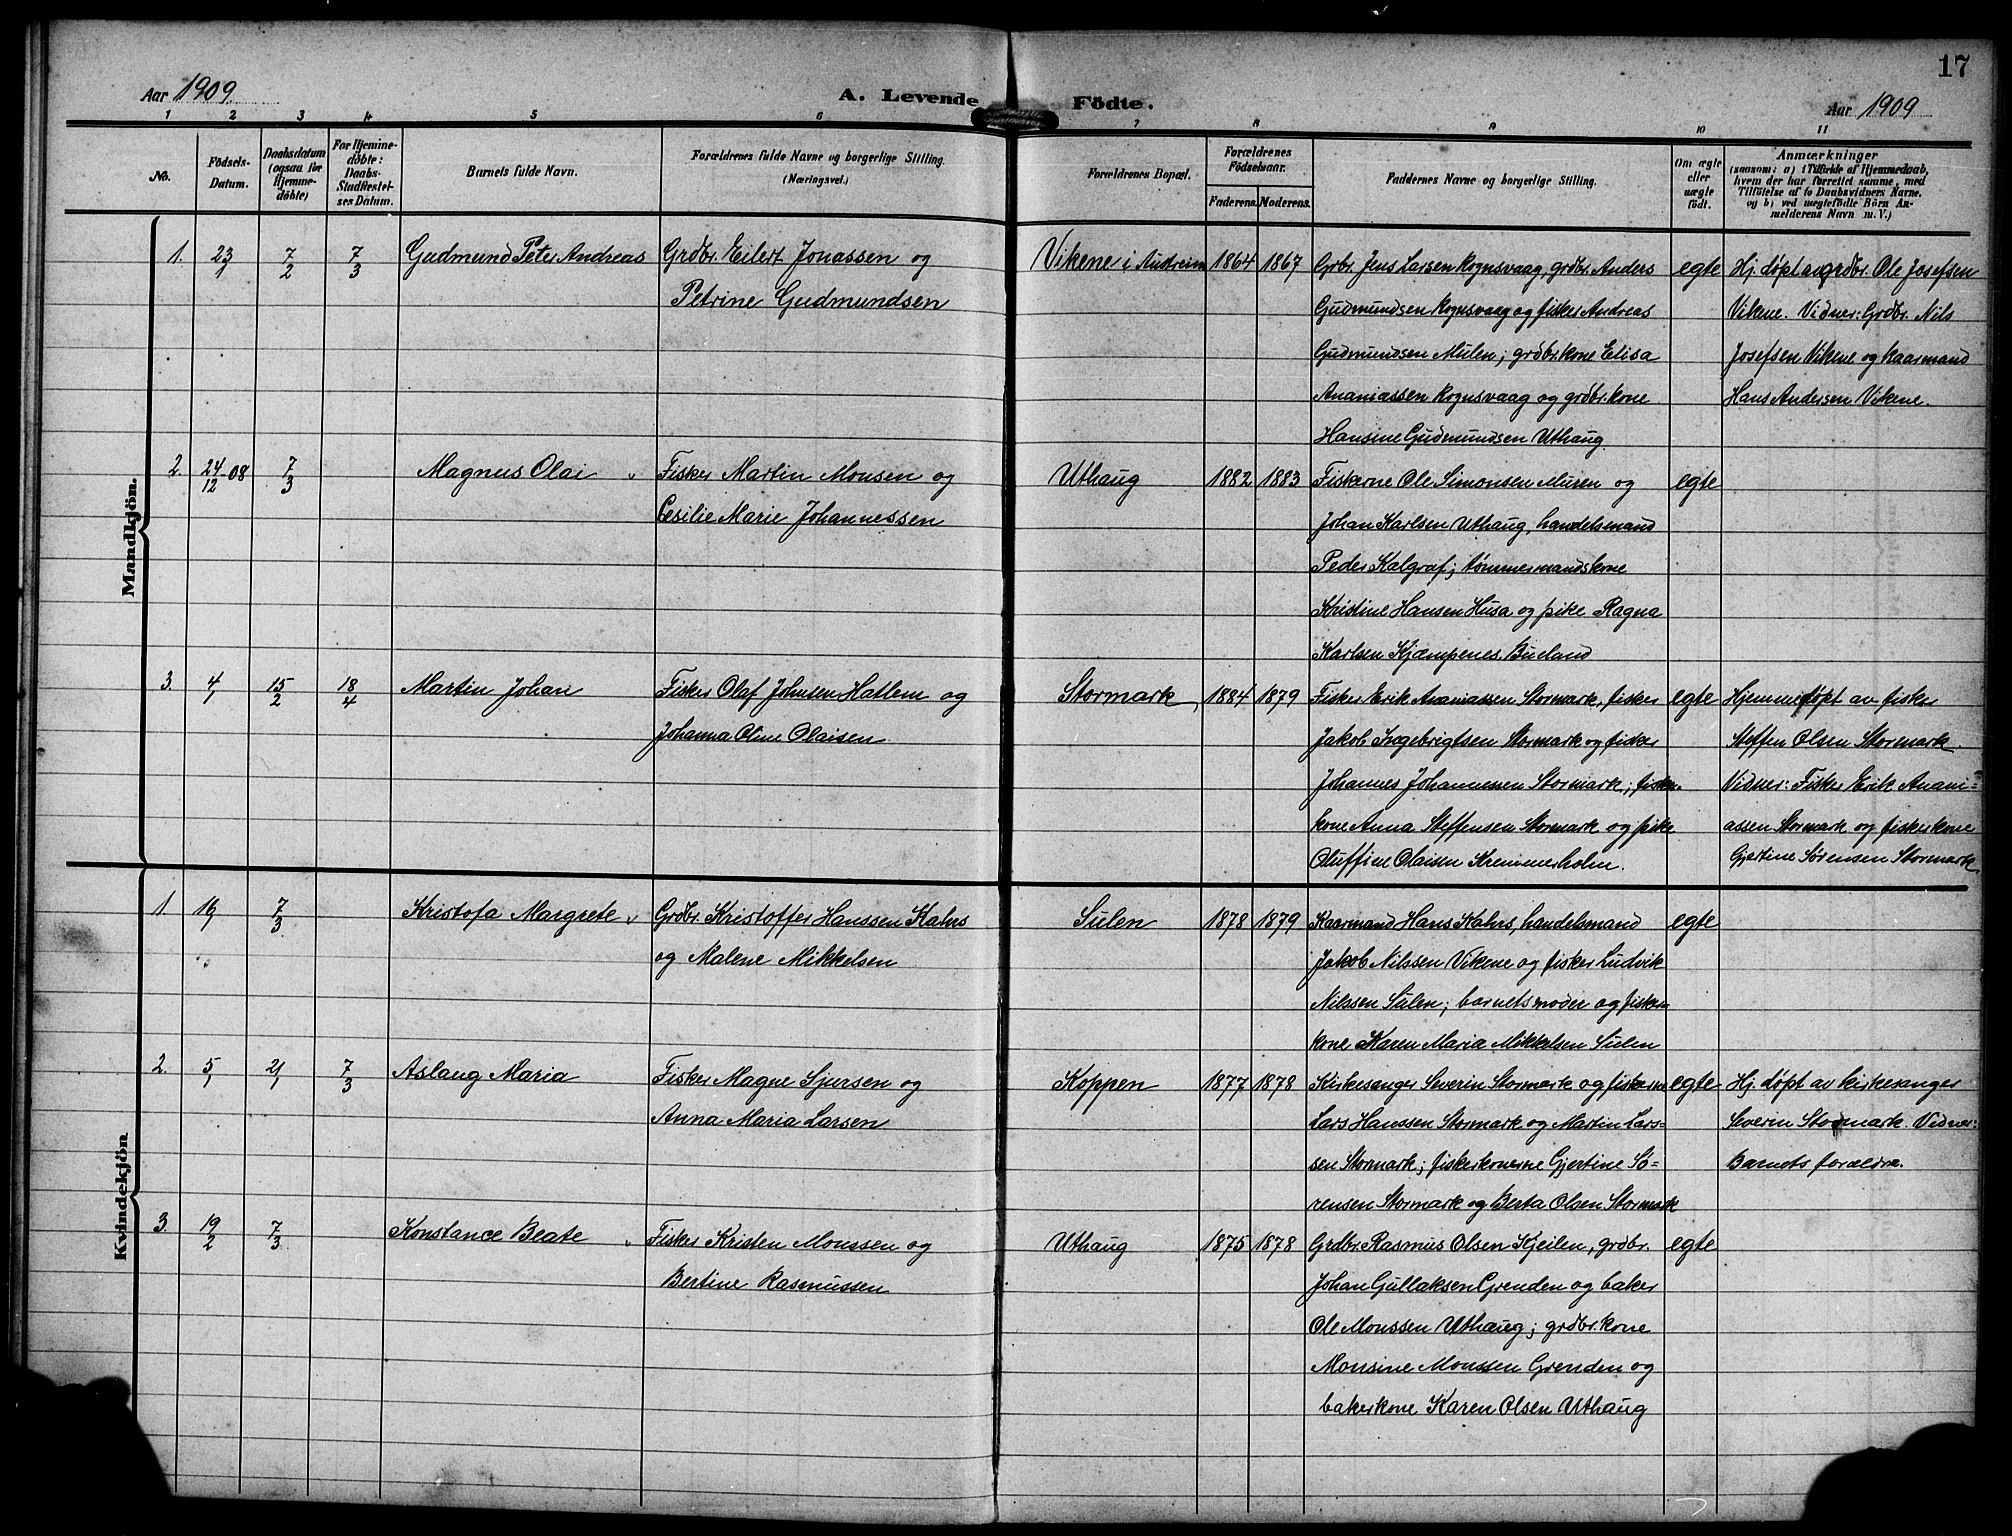 17
Aar 1909.
A. Levende Födte.
Aar 1909
1 2 3 4 5 6 7 8 9 10 11
No.
Födsels-
Datum.
Daabsdatum
(ogsaa for
Hjemme-
döbte)
For Hjemme-
döbte:
Daabs-
Stadfæstel-
ses Datum.
Barnets fulde Navn.
Forældrenes fulde Navne og borgerlige Stilling.
(Næringsvei.)
Forældrenes Bopæl.
Forældrenes
Födselsaar.
Faderens. Moderens.
Faddernes Navne og borgerlige Stilling.
Om ægte
eller
uægte
födt.
Anmærkninger
(saasom: a) i Tilfælde af Hjemmedaab,
hvem der har forrettet samme, med
Tilföielse af to Daabsvidners Navne,
og b) ved uegtefödte Börn An-
melderens Navn m. V.)
Mandkjön.
1. 23/1 7/2 7/3 Gudmund Peter Andreas
Grdbr. Eilert Jonassen og
Petrine Gudmundsen
Vikene i Andreim 1864 1867
Grbr. Jens Larsen Rognsvaag, grdbr. Anders
Gudmundsen Rognsvaag og fisker Andreas
Gudmundsen Mulen; grdbr.kone Elisa
Ananiassen Rognsvaag og grdbr.kone
Hansine Gudmundsen Uthaug
egte
Hj. døpt av grdbr. Ole Josefsen
Vikene. Vidner: Grdbr. Nils
Josefsen Vikene og kaarmand
Hans Andersen Vikene.
2. 24/12 08 7/3 Magnus Olai
Fisker Martin Monsen og
Cesilie Marie Johannessen
Uthaug 1882 1883
Fiskerne Ole Simonsen Muren og
Johan Karlsen Uthaug, handelsmand
Peder Kalgraf; tømmermandskone
Kristine Hansen Husa og pike Ragna
Karlsen Kjæmpenes. Bueland
egte
3. 4/1 15/2 18/4 Martin Johan
Fisker Olaf Johnsen Hatlem og
Johanna Oline Olaisen
Stormark 1884 1879
Fisker Erik Ananiassen Stormark, fisker
Jakob Ingebrigtsen Stormark og fisker
Johannes Johannessen Stormark; fisker-
kone Anna Steffensen Stormark og pike
Oluffine Olaisen Kremmerholm.
egte
Hjemmedøpt av fisker
Steffen Olsen Stormark.
Vidner: Fisker Erik Anani-
assen Stormark og fiskerkone
Gjertine Sørensen Stormark.
Kvindekjön
1 16/1 7/3 Kristofa Margrete
Grdbr. Kristoffer Hanssen Kahrs
og Malene Mikkelsen
Sulen 1878 1879
Kaarmand Hans Kahrs, handelsmand
Jakob Nilssen Vikene og fisker Ludvik
Nilssen Sulen; barnets moder og fisker-
kone Karen Maria Mikkelsen Sulen
egte
2. 5/1 21/1 7/3 Aslaug Maria
Fisker Magne Sjursen og
Anna Maria Larsen
Koppen 1877 1878
Kirkesanger Severin Stormark og fiskerne
Lars Hanssen Stormark og Martin Lars-
sen Stormark; fiskerkonerne Gjertine Sö-
rensen Stormark og Berta Olsen Stormark
egte
Hj. døpt av kirkesanger
Severin Stormark. Vidner:
Barnets forældre.
3. 19/2 7/3 Konstance Beate
Fisker Kristen Monssen og
Bertine Rasmussen
Uthaug 1875 1878
Grdbr. Rasmus Olsen Kjeilen, grdbr.
Johan Gullaksen Grenden og baker
Ole Monssen Uthaug; grdbr.kone
Monsine Monssen Grenden og
bakerkone Karen Olsen Uthaug
egte